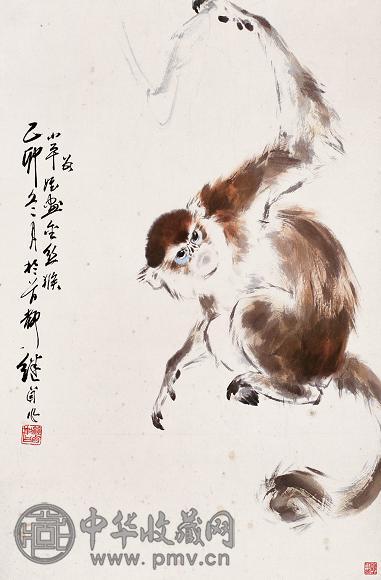 小平画金丝猴
乙卯冬月於首都 继卣作
中华收藏网
www.pmv.cn